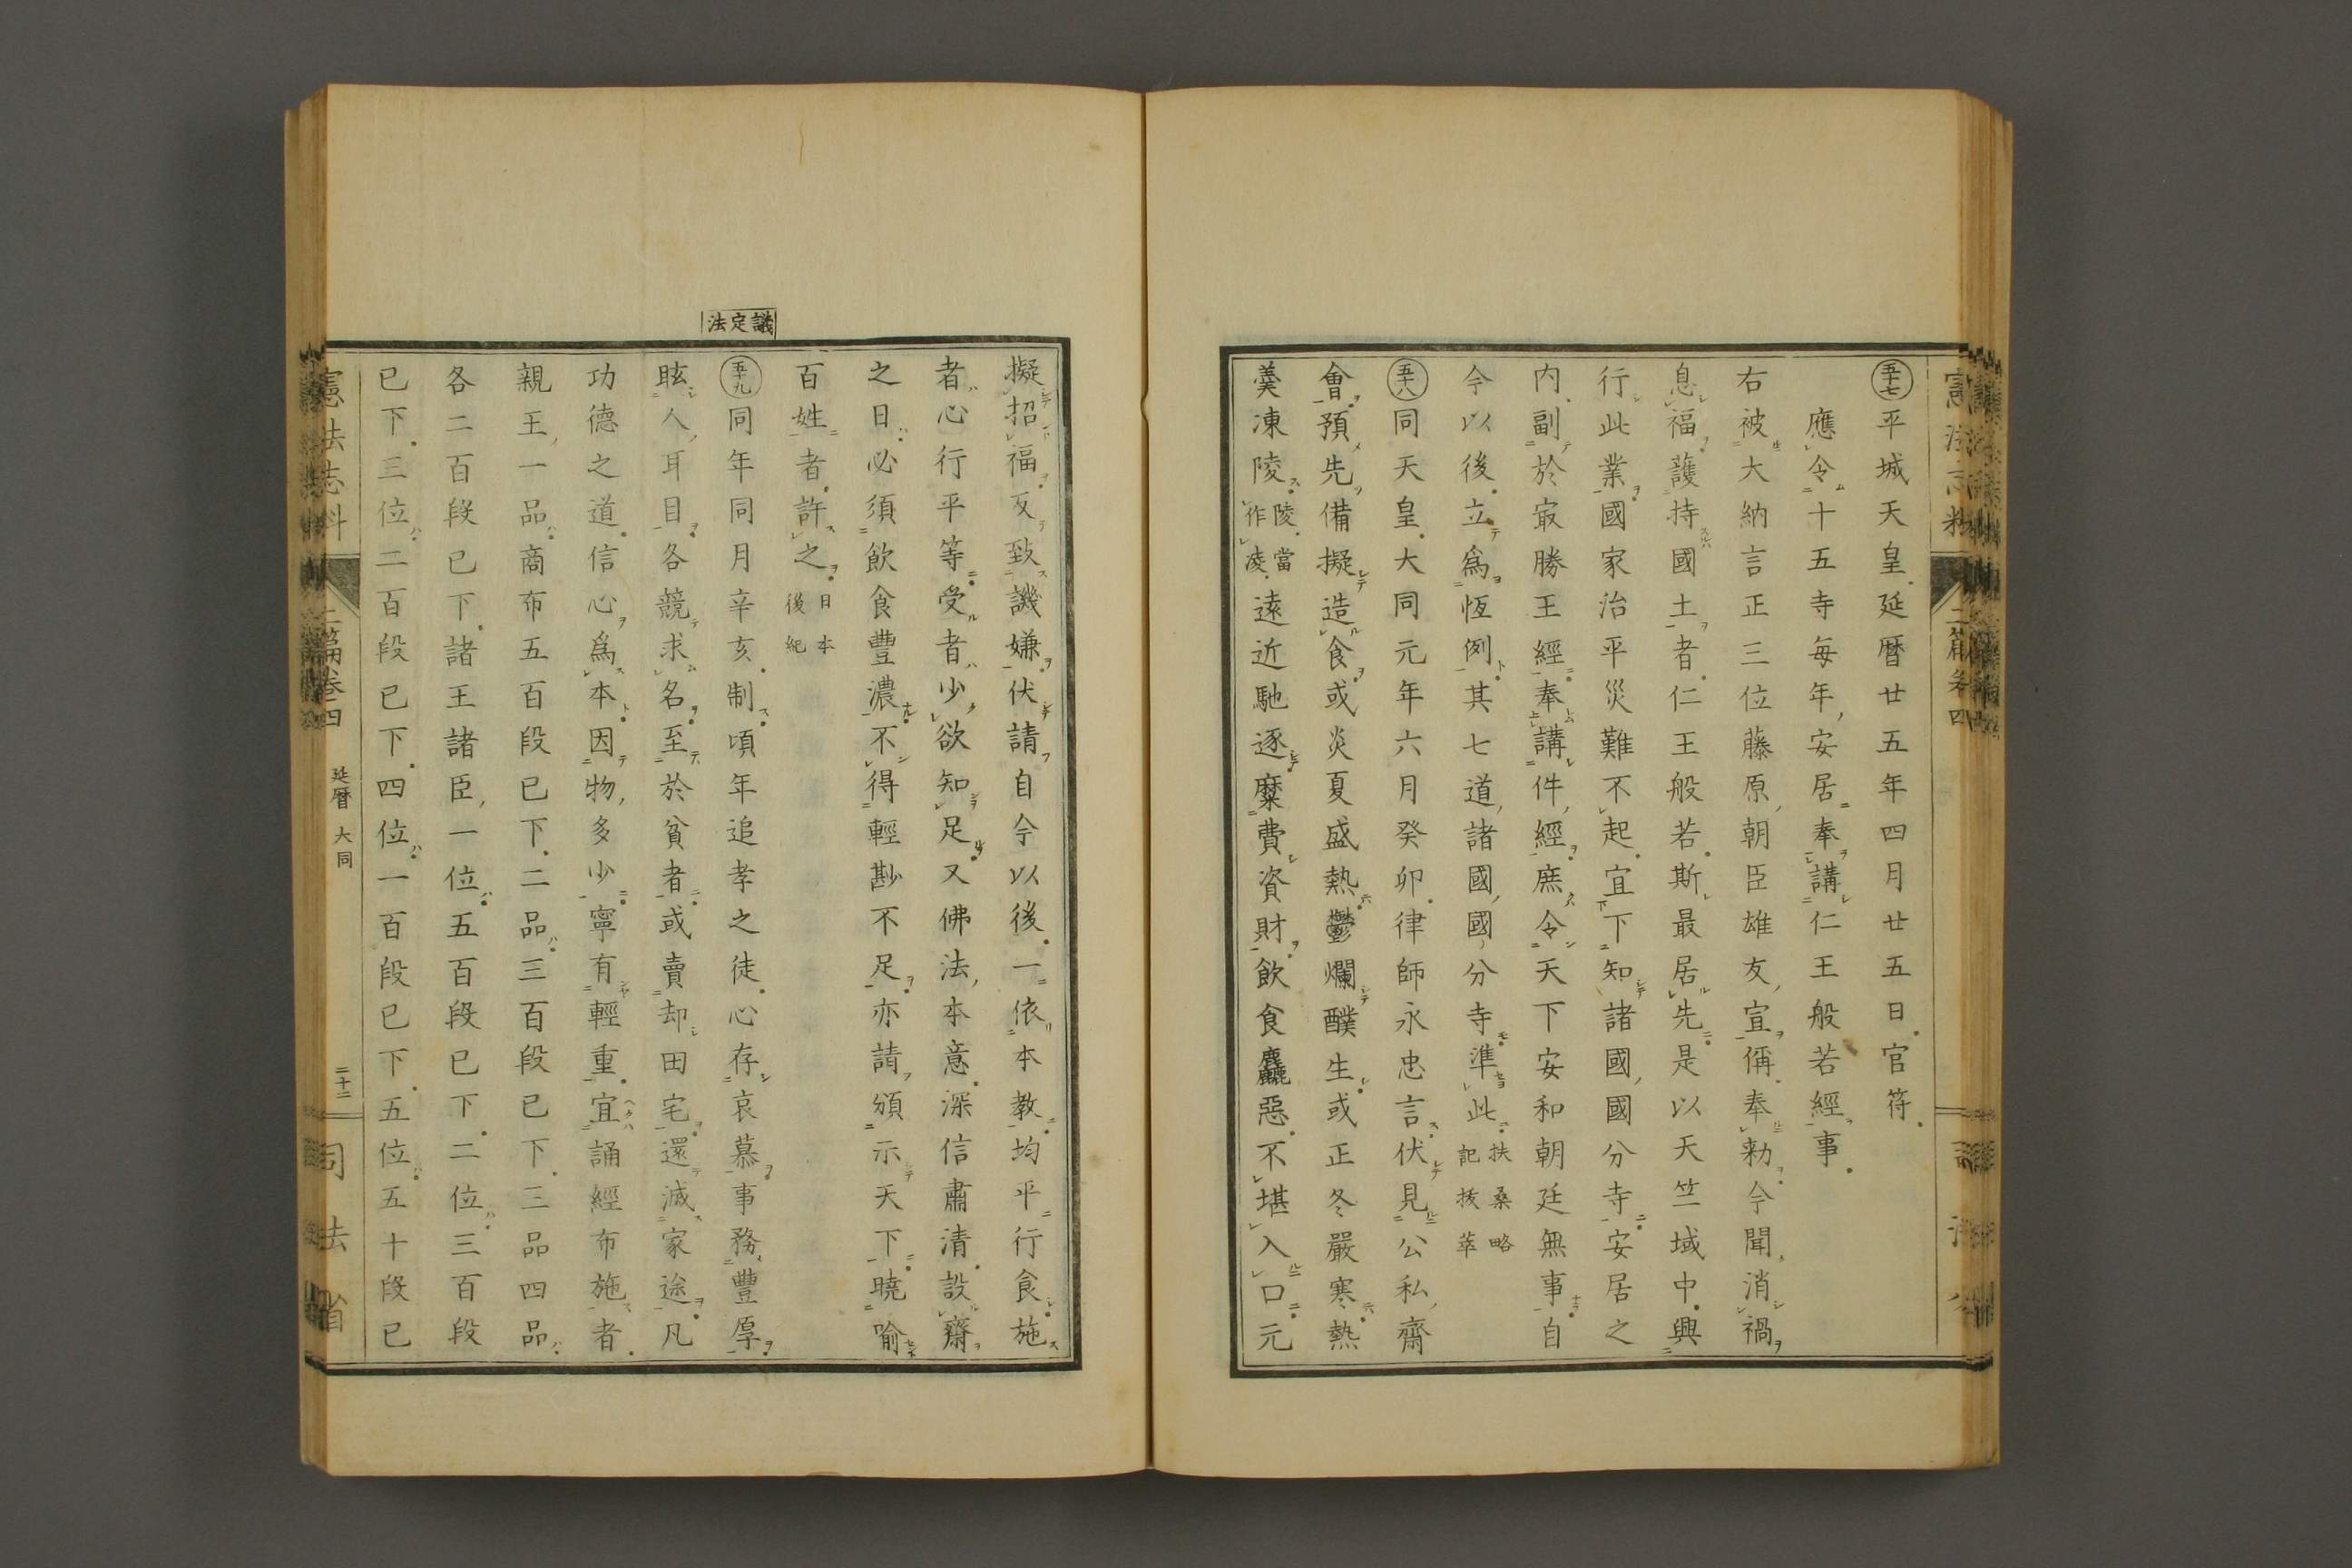 五十七平城天皇延曆廿五年四月廿五日官符
應令十五寺每年安居奉講仁王般若經事
右被大納言正三位藤原朝臣雄友宣偁奉勅今聞消禍
息福護持國土者仁王般若斯最居先是以天竺域中興
行此業國家治平災難不起宜下知諸國國分寺安居之
内副於㝡勝王經奉講件經庶令天下安和朝廷無事自
今以後立爲恆例其七道諸國國分寺準此扶桑略記拔萃
五十八同天皇大同元年六月癸卯律師永忠言伏見公私齋
會預先備擬造食或炎夏盛熱鬱爛醭生或正冬嚴寒熱
羹凍陵陵當作凌遠近馳逐糜費資財飲食麤惡不堪入口元
議定法
擬招福反致譏嫌伏請自今以後一依本教均平行食施
者心行平等受者少欲知足又佛法本意深信肅清設齋
之日必須飲食豐濃不得輕尠不足亦請頒示天下曉喻
百姓者許之日本後紀
五十九同年同月辛亥制頃年追孝之徒心存哀慕事務豐厚
眩人耳目各競求名至於貧者或賣却田宅還滅家途凡
功德之道信心爲本因物多少寧有輕重宜誦經布施者
親王一品商布五百段已下二品三百段已下三品四品
各二百段已下諸王諸臣一位五百段已下二位三百段
已下三位二百段已下四位一百段已下五位五十段已
憲法志料 二篇卷四 延曆 大同 二十三 司法省